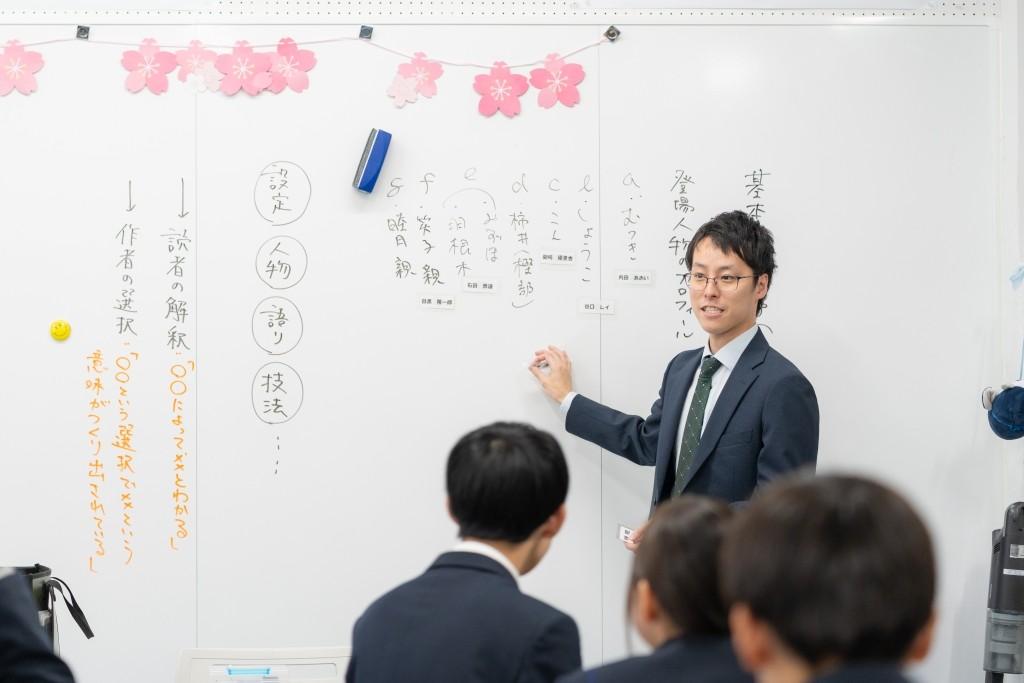 基本
登場人物のプロフィール
a.むつき
b.しょうこ
c.こん
d.柿井(樫部)
e.みずほ
羽根木
f.笑子 親
g.睦月 親
片田 あおい
谷口 レイ
石田 悠遠
目黒 陽一郎
設定
人物
語り
技法
…
→読者の解釈
"「〇〇によって××とわかる」
→作者の選択
"「〇〇という選択で××という
意味がつくり出されている」